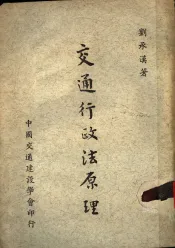 劉承漢著
交通行政法原理
中國交通建設學會印行